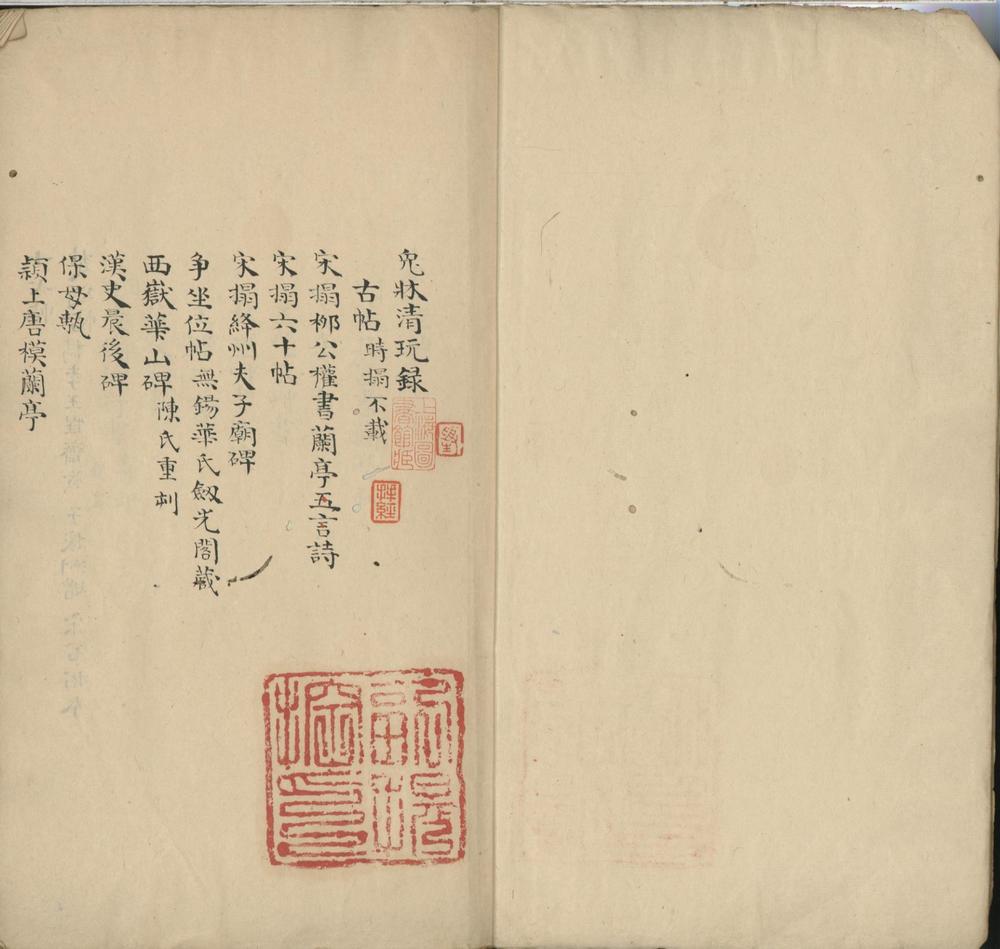 兔牀清玩録
古帖時搨不載
宋搨栁公權書蘭亭五言詩
宋搨六十帖
宋搨絳州夫子廟碑
爭坐位帖無錫華氏劔光閣藏
西嶽華山碑陳氏重刻
漢史晨後碑
保母甎
潁上唐模蘭亭
上海圖書館藏